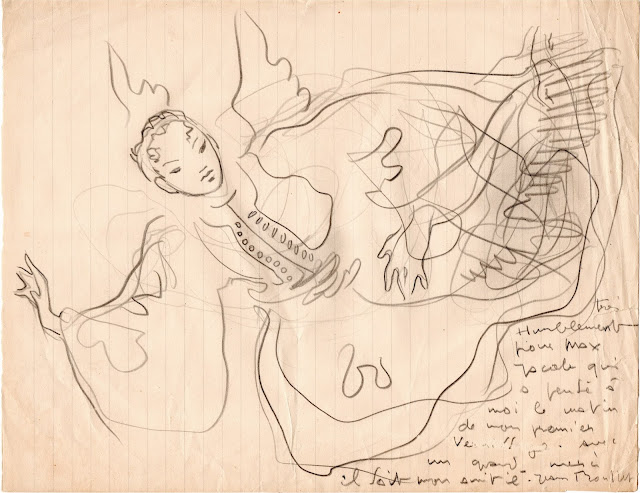 très
Humblement
pour Max
Jacob qui
a pensé à
moi le matin
de mon premier
avec
un grand merci
il sait mon amitié. Jean